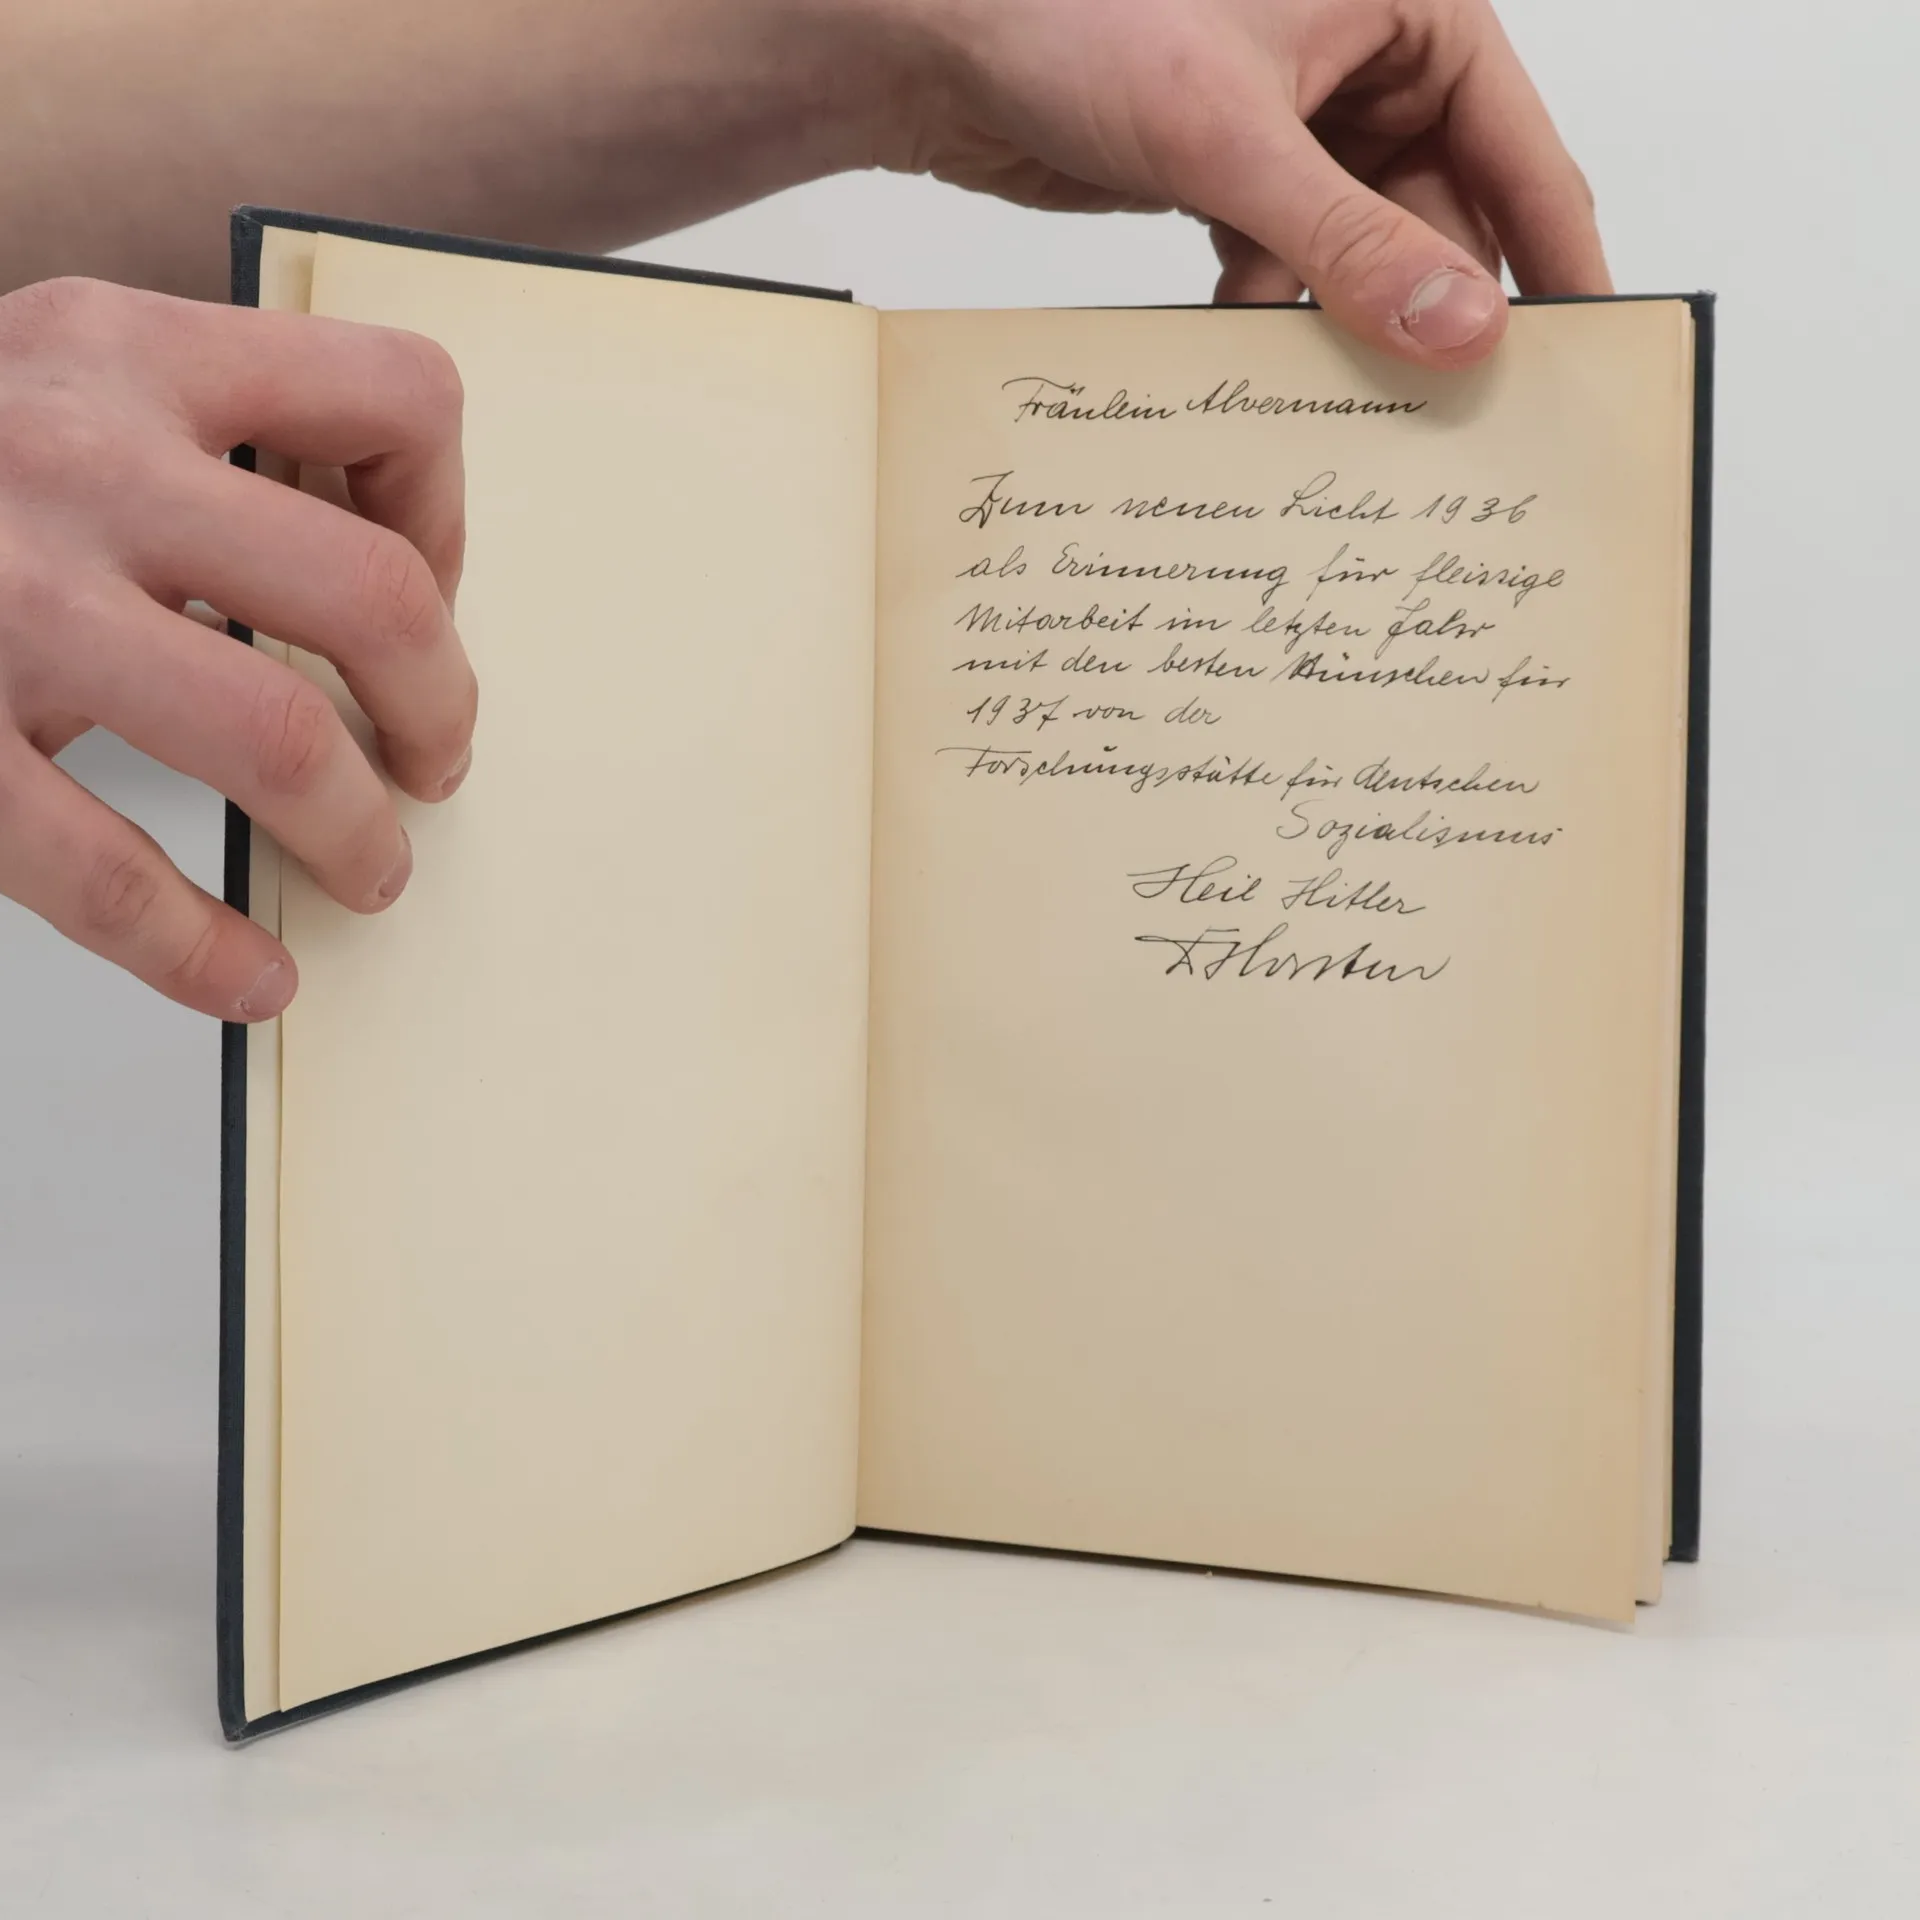 Fräulein Alvermann
Zum neuen Licht 1936
als Erinnerung für fleissige
Mitarbeit im letzten Jahr
mit den besten Wünschen für
1937 von der
Forschungsstätte für deutschen
Sozialismus
Heil Hitler
Horsten